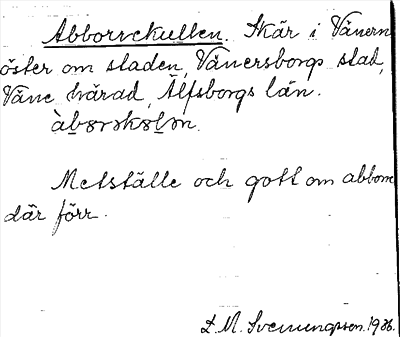 Abborrekullen. Skär i Vänern
öster om staden, Vänersborgs stad,
Väne härad, Älfsborgs län.
Metställe och gott om abborre
där förr.
1936.